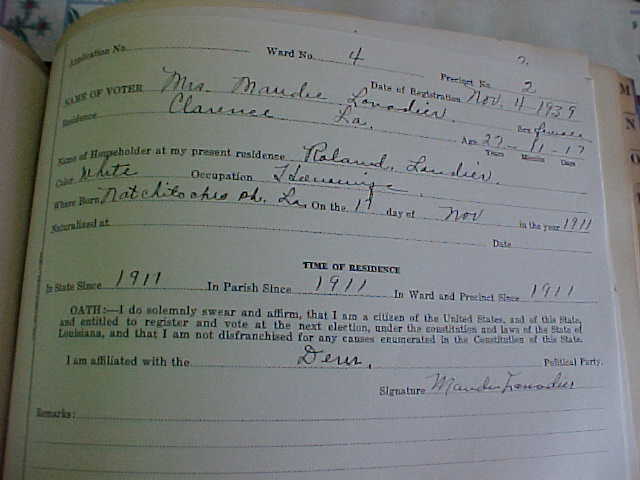 Application No. Ward No. 4 Precinct No. 2
Date of Registration Nov. 4-1939
NAME OF VOTER Mrs. Maudie Lonadier. Sex female
Residence Clarence La. Age 27-11-17
Years Months Days
Name of Householder at my present residence Roland
Color White Occupation
Where Born Natchitoches ph. La. On the 17 day of Nov in the year 1911
Naturalized at Date
TIME OF RESIDENCE
In State Since 1911 In Parish Since 1911 In Ward and Precinct Since 1911
OATH:—I do solemnly swear and affirm, that I am a citizen of the United States, and of this State,
and entitled to register and vote at the next election, under the constitution and laws of the State of
Louisiana, and that I am not disfranchised for any causes enumerated in the Constitution of this State.
I am affiliated with the Dem. Political Party.
Signature Maudie Lonadier
Remarks:
M
N
O